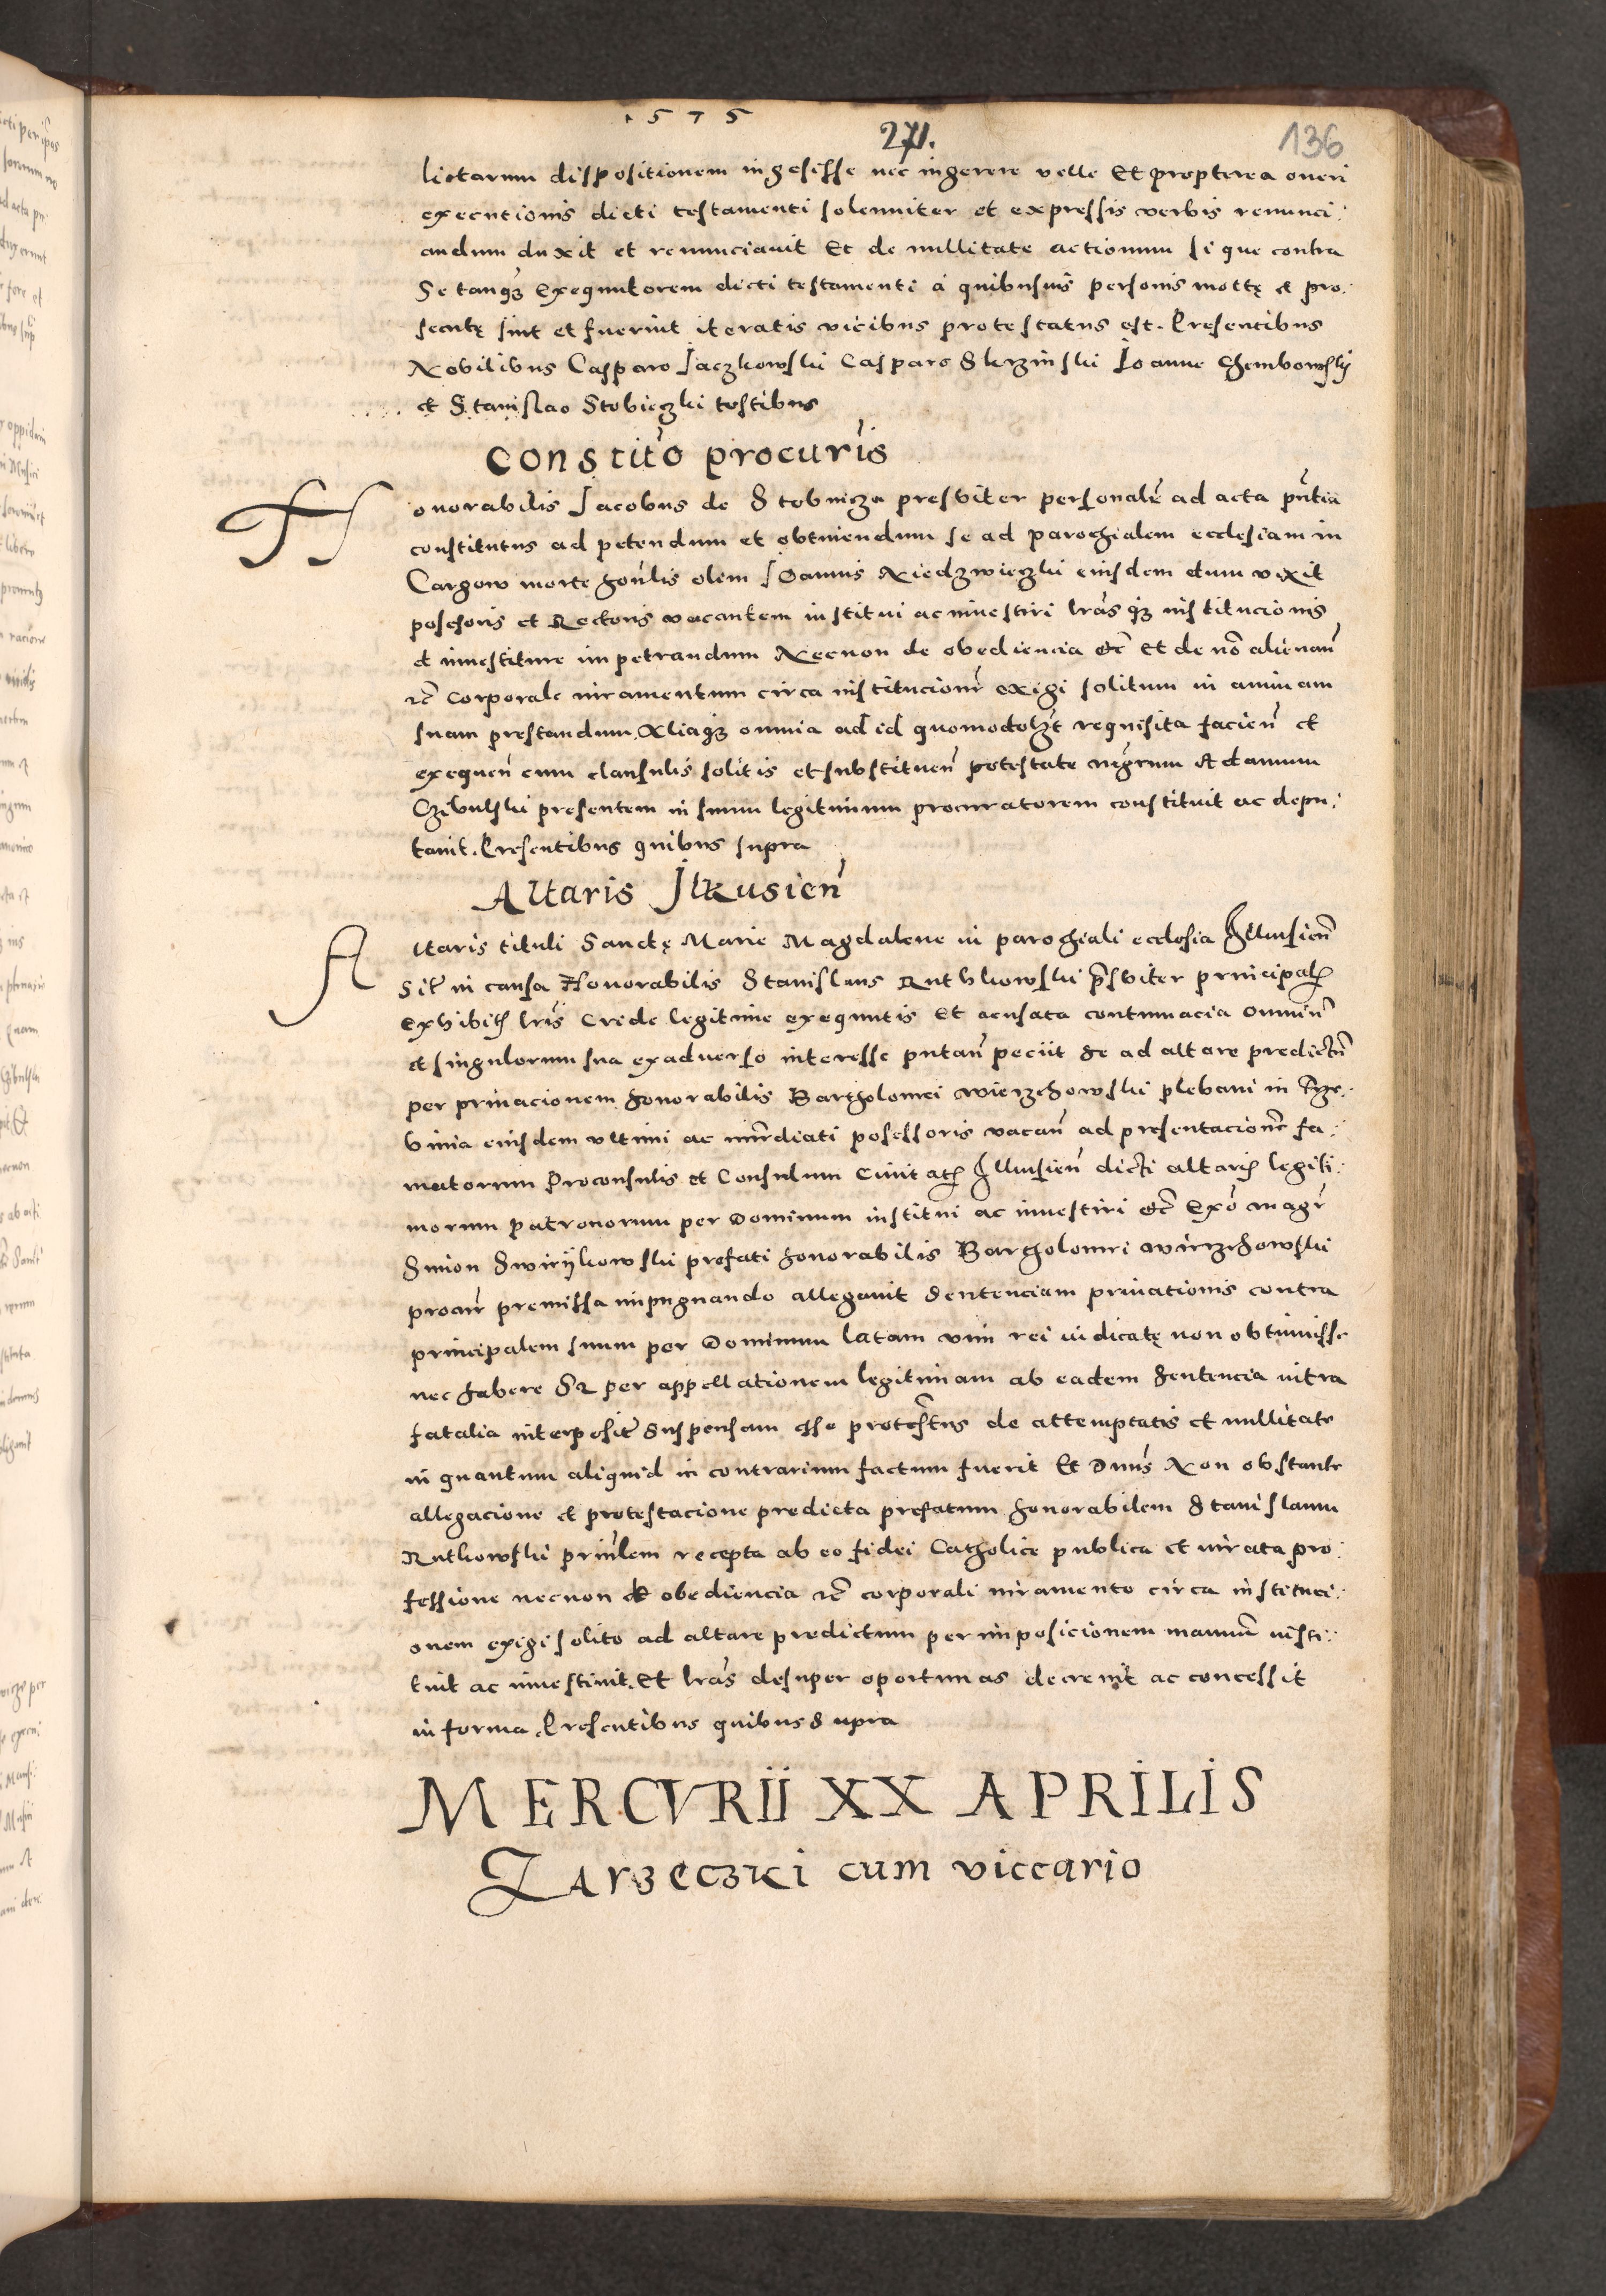 1575
271.
136
lictarum dispositionem ingesisse nec ingerere velle Et propterea oneri
executionis dicti testamenti solenniter et expressis verbis renunci:
andum duxit et renunciavit Et de nullitate actionum si que contra
Se tanqz Exequutorem dicti testamenti a quibusuis personis motę et pro:
secutę sint et fuerint iteratis vicibus protestatus est. Presentibus
Nobilibus Casparo Jaczkowski Casparo Skrzinski Joanne Chembowskij
et Stanislao Stobieczki testibus
Constito procuris
Honorabilis Jacobus de Stobnicza presbiter personalr ad acta pntia
constitutus ad petendum et obtinendum se ad parochialem ecclesiam in
Cargow morte honlis olim Joannis Niedzwieczki eiusdem dum vixit
posesoris et Rectoris vacantem institui ac inuestiri lras qz institucionis
et inuestiture impetrandum Necnon de obediencia etc Et de no alienan
etc corporale iuramentum circa institucionem exigi solitum in animam
suam prestandum. Aliaqz omnia ad id quomodolzt requisita facien et
exequen cum clausulis solitis et substituen potestate mgrum Adamum
Czebulski presentem in suum legitimum procuratorem constituit ac depu:
tauit. Presentibus quibus supra
Altaris Jlkusien
Altaris tituli Sanctę Marie Magdalene in parochiali ecclesia Jlkusien
Sit in causa Honorabilis Stanislaus Ruthkowski prsbiter principalis
Exhibitis lris Cride legitime exequutis Et acusata contumacia omnium
et singulorum sua exaduerso interesse putan peciit se ad altare predictum
per priuacionem honorabilis Bartholomei Wierzchowski plebani in
binia eiusdem vltimi ac immediati posessoris vacan ad presentacionem fa:
matorum Proconsulis et Consulum Ciuitatis Jlkusien dicti altaris legiti:
morum patronorum per Dominum institui ac inuestiri etc Exo magr
Simon prefati honorabilis Bartholomei Wirzchowski
procur premissa impugnando allegauit Sentenciam priuationis contra
principalem suum per Dominum latam vim rei iudicatę non obtinuisse
nec habere Sz per appellationem legitimam ab eadem Sentencia intra
fatalia interposit Suspensam esse protestus de attemptatis et nullitate
in quantum aliquid in contrarium factum fuerit Et Dnus Non obstante
allegacione et protestacione predicta prefatum honorabilem Stanislaum
Rutkowski prinlem recepta ab eo fidei Catholice publica et iurata pro:
fessione necnon de obediencia etc corporali iuramento circa instituci:
onem exigi solito ad altare predictum per imposicionem manum insti:
tuit ac inuestiuit. Et lras desuper oportunas decreuit ac concessit
in forma. Presentibus quibus Supra
MERCVRII XX APRILIS
Zarzeczki cum viccario